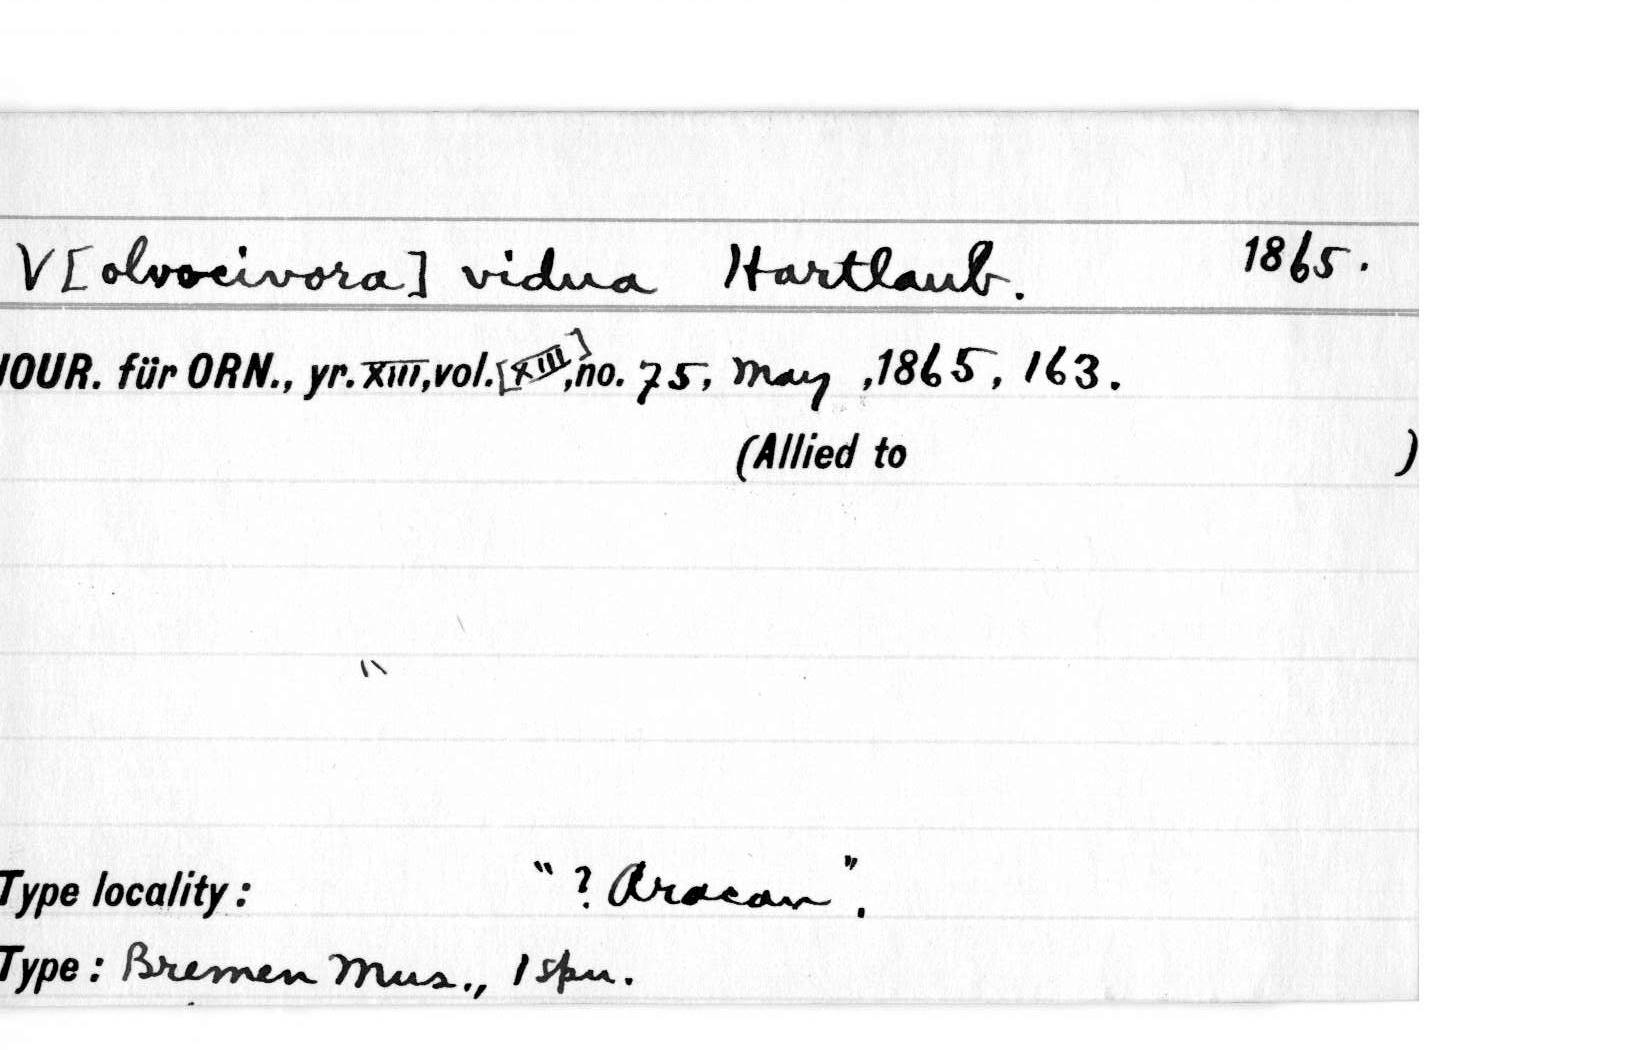 V[olvocivora] vidua Hartlaub. 1865.
JOUR. für ORN., yr. XIII, vol. [XIII], no. 75, May, 1865, 163.
(Allied to )
"
Type locality: "? Aracan".
Type: Bremen Mus., 1 spn.